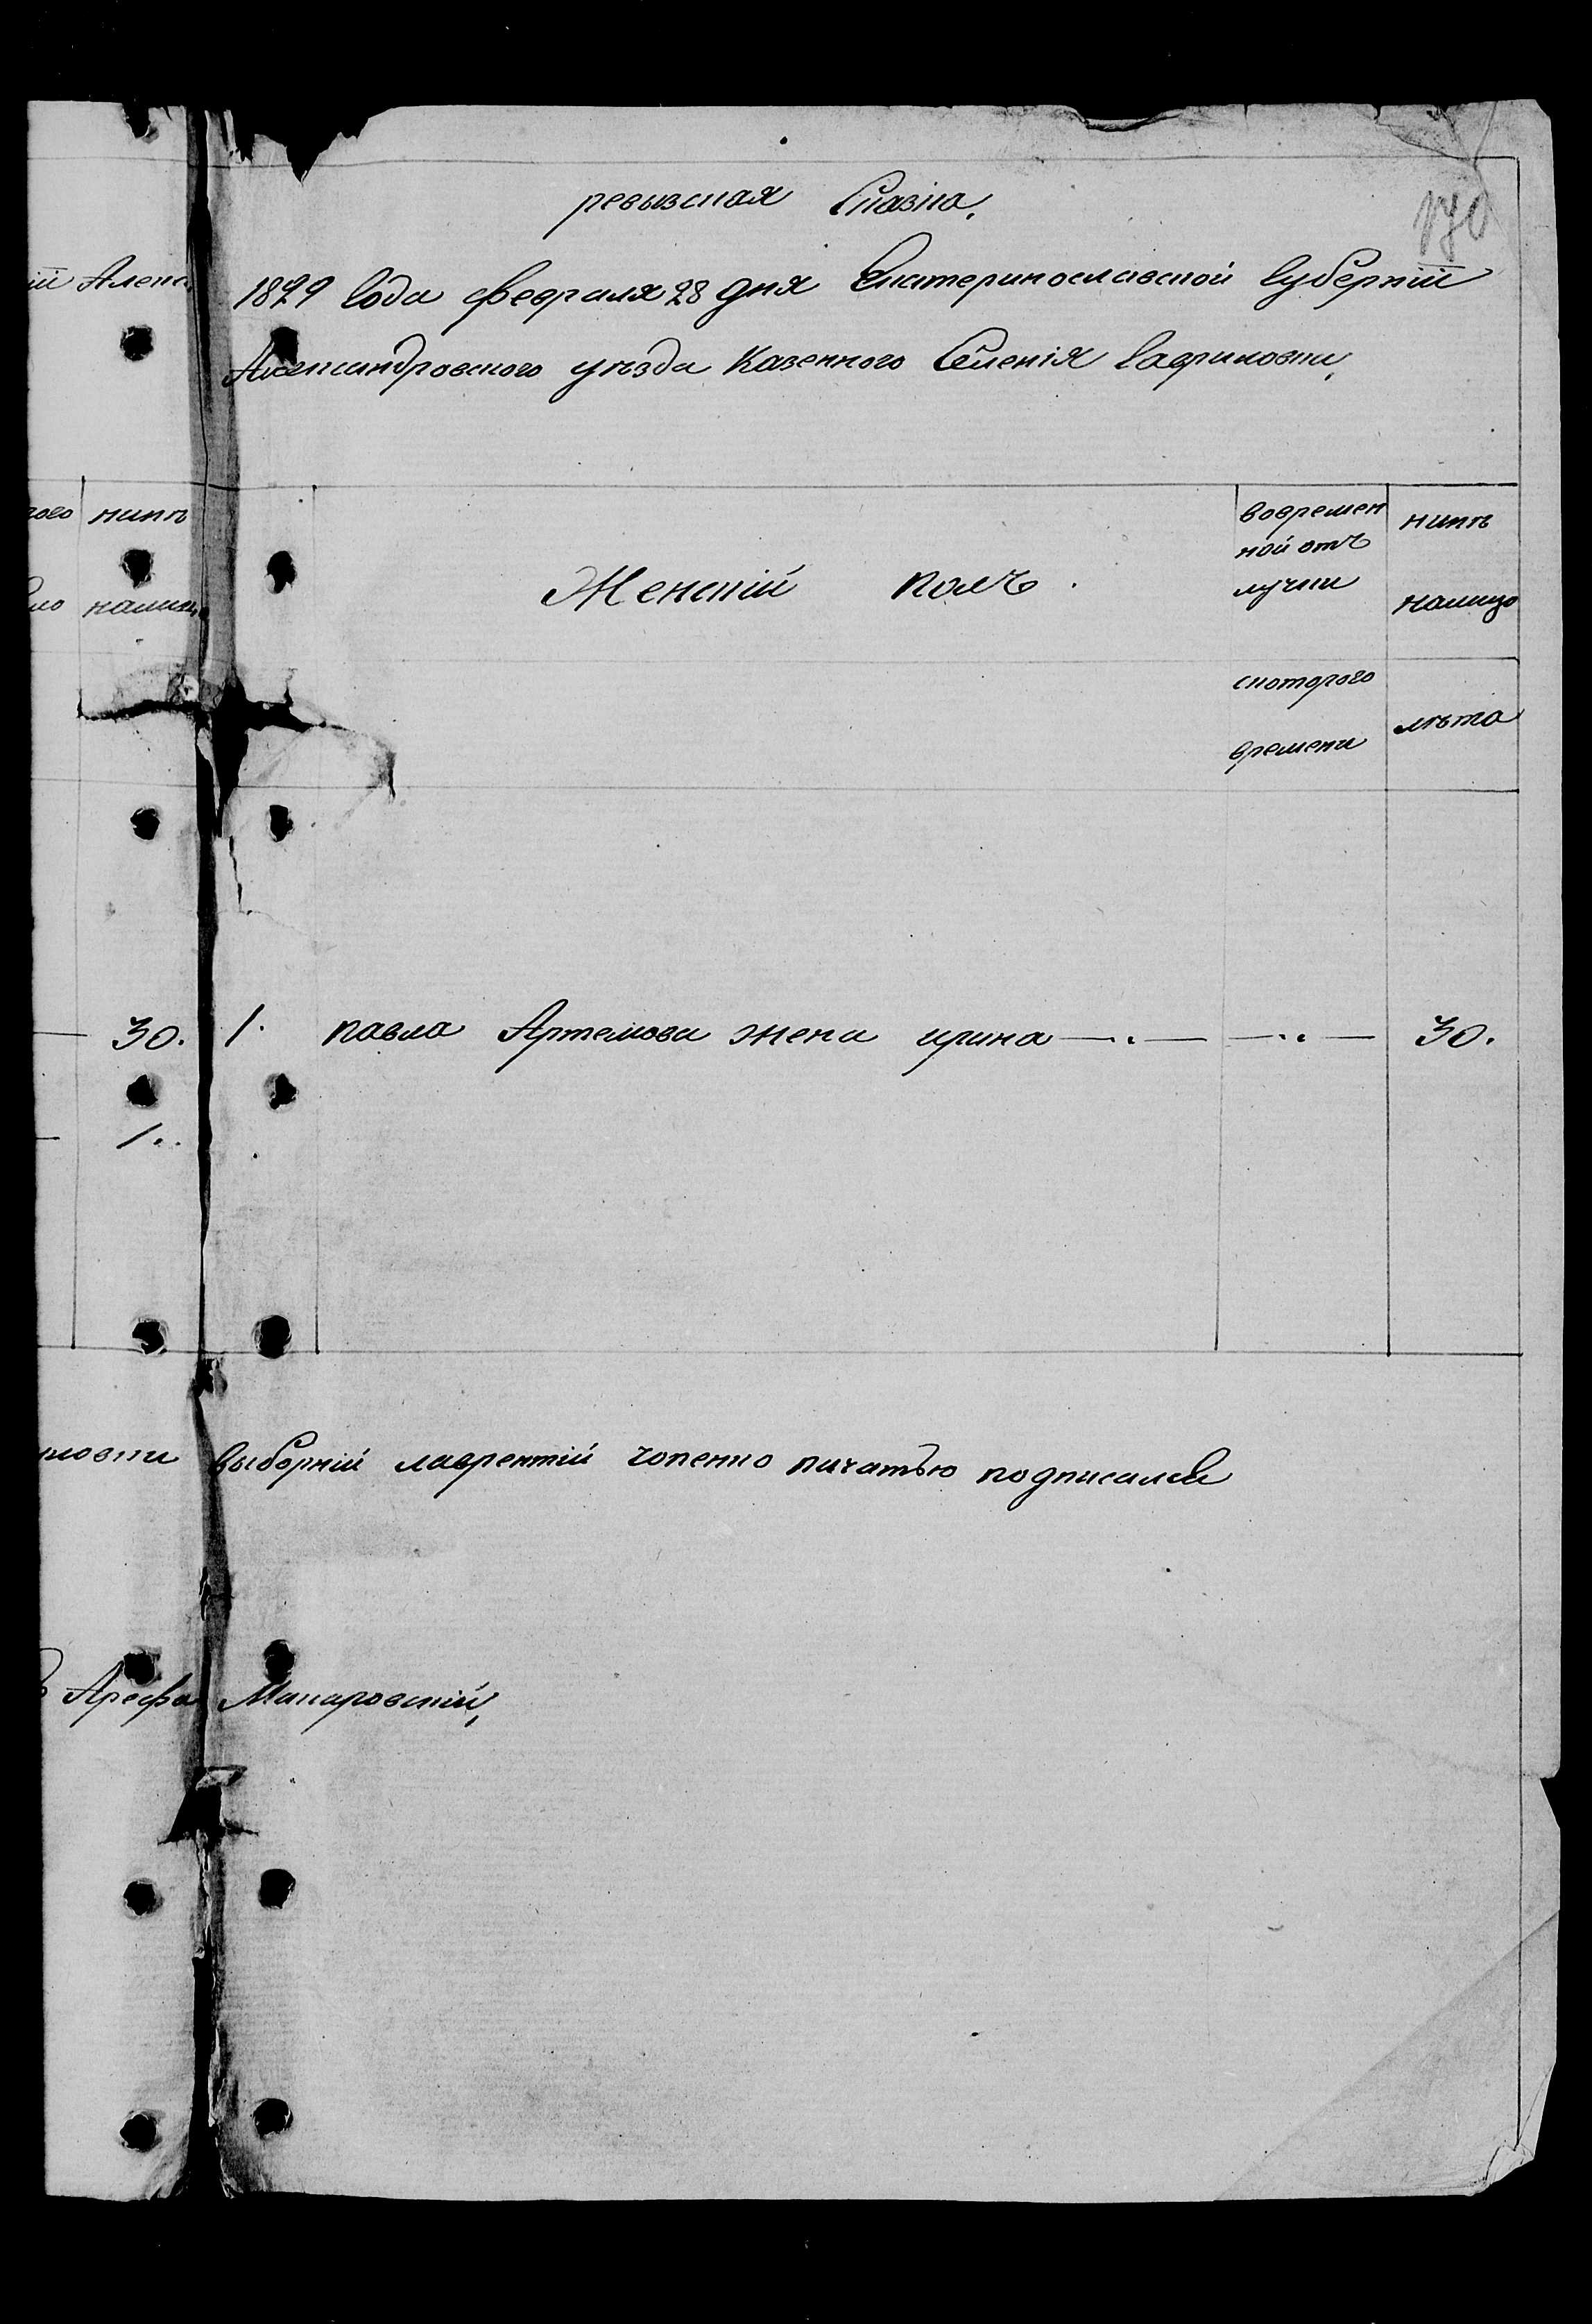 ревызская Сказка.
170
1829 года февраля 28 дня Екатеринославской губерніи
Александровского уѣзда Казенного Селенія Гавриловки,
нинѣ
Женскій полъ.
вовремен
ной отъ
лучки
нинѣ
налицо
скоторого
времени
лѣта
30. 1. павла Артемова жена ирина —.— —..— 30.
1..
выборній лаврентій чопенко пичатью подписался
Арефа Макаровскій,